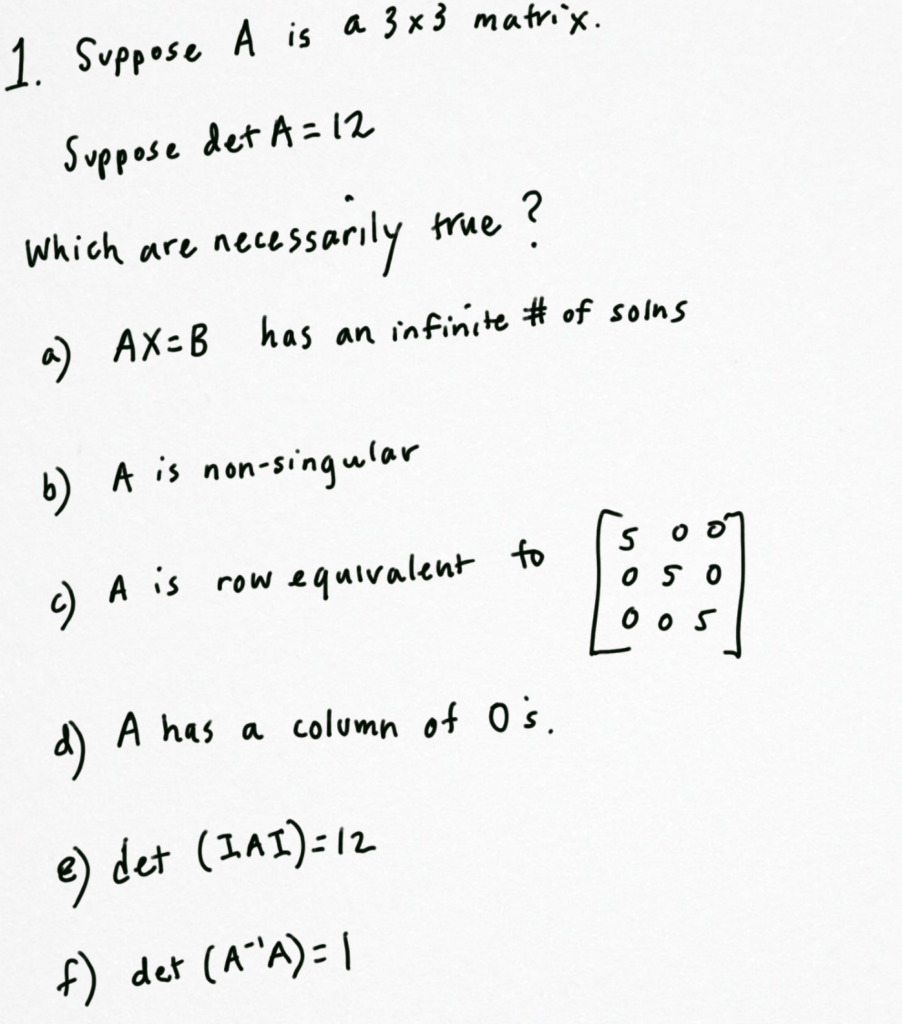 1. Suppose A is a 3x3 matrix.
Suppose det A = 12
Which are necessarily true?
a) AX=B has an infinite # of solns
b) A is non-singular
c) A is row equivalent to [5 0 0
0 5 0
0 0 5]
d) A has a column of 0's.
e) det (IAI)=12
f) det (A⁻¹A)=1